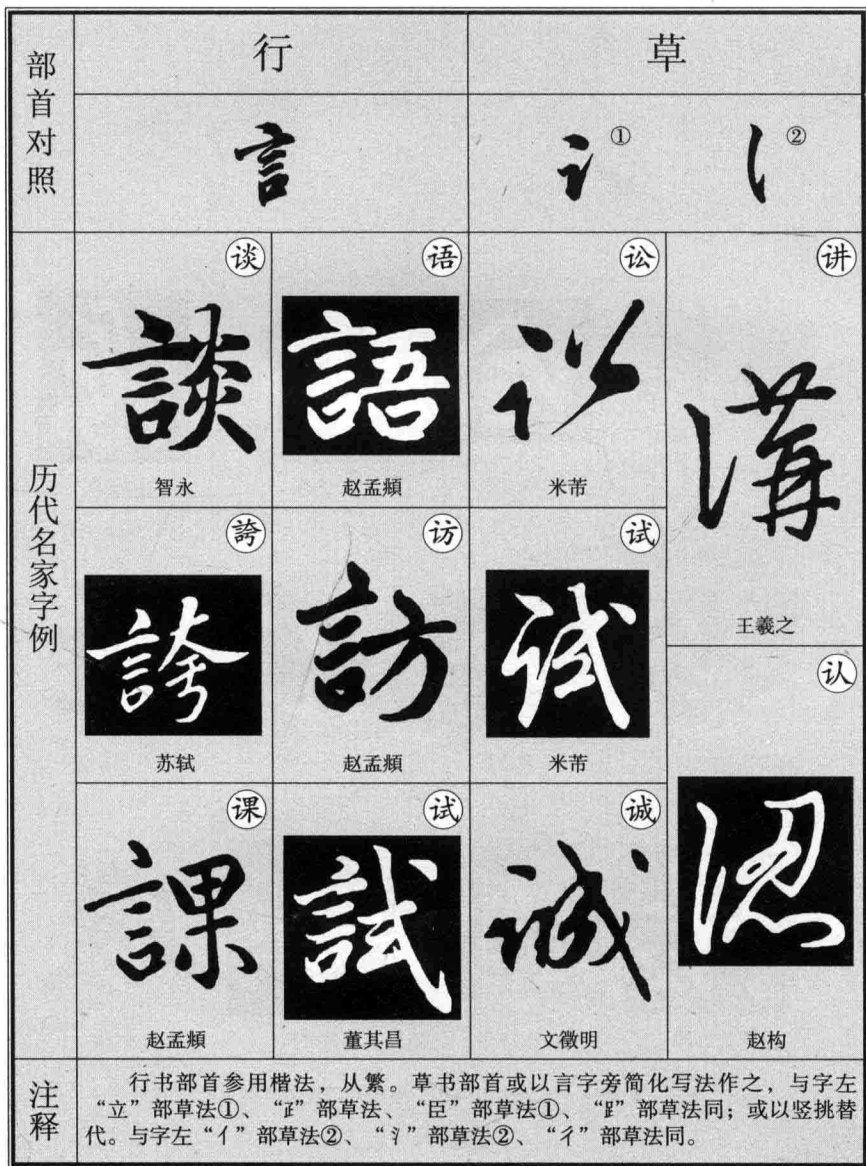 部首对照
行
草
言
讠①
②
历代名家字例
谈
談
智永
语
語
赵孟頫
讼
讼
米芾
讲
講
王羲之
誇
誇
苏轼
访
訪
赵孟頫
试
试
米芾
认
認
赵构
课
課
赵孟頫
试
試
董其昌
诚
诚
文徵明
注释
行书部首参用楷法，从繁。草书部首或以言字旁简化写法作之，与字左
“立”部草法①、“”部草法、“臣”部草法①、“”部草法同；或以竖挑替
代。与字左“亻”部草法②、“氵”部草法②、“彳”部草法同。